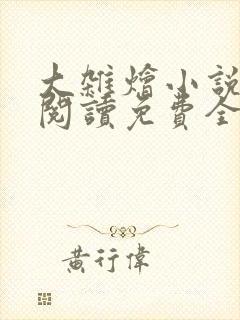 大雜燴小說
閱讀免費全
黃行偉